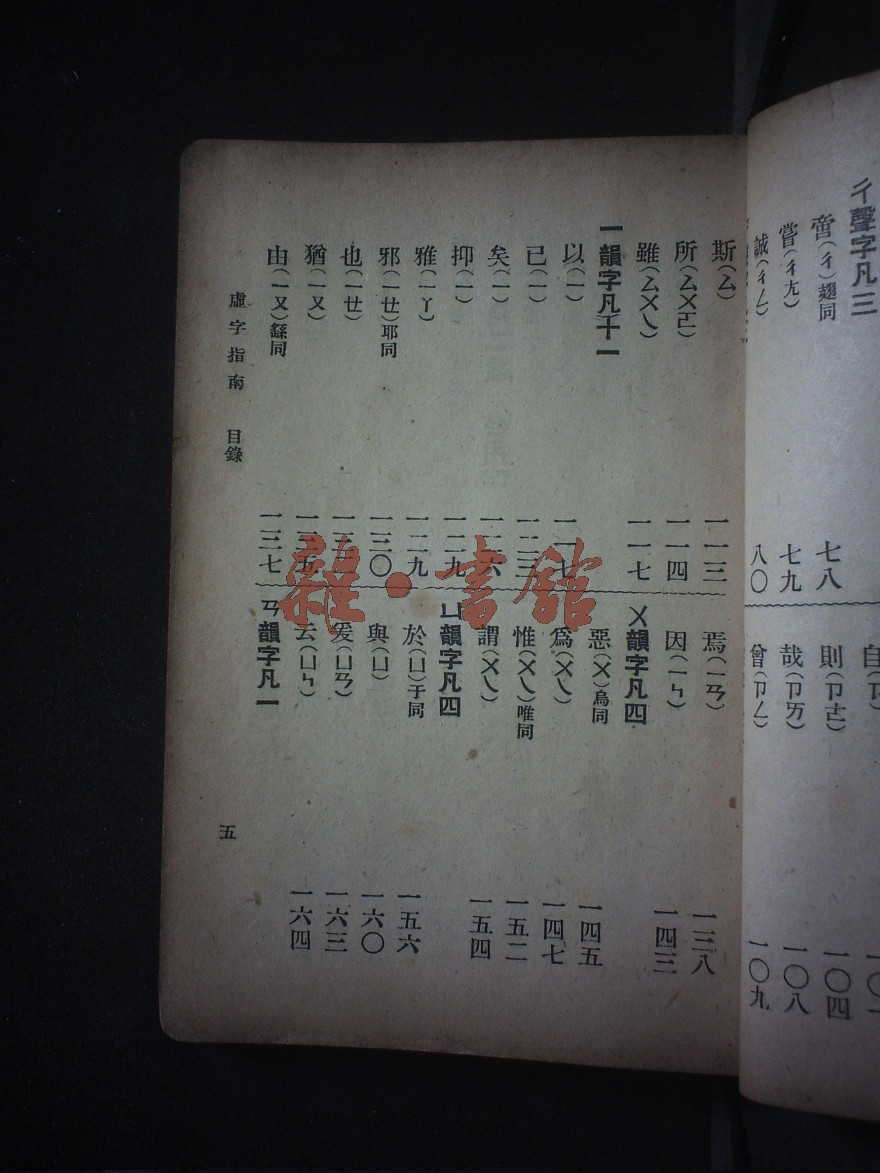 彳聲字凡三
啻(彳)翅同 七八
嘗(彳尢) 七九
誠(彳ㄥ) 八〇
則(ㄗㄜ) 一〇四
哉(ㄗㄞ) 一〇八
曾(ㄗㄥ) 一〇九
斯(ㄙ) 一一三
所(ㄙㄨㄛ) 一一四
雖(ㄙㄨㄟ) 一一七
一韻字凡十一
以(一) 一一七
已(一) 一二三
矣(一) 一二六
抑(一) 一二九
雅(一ㄚ) 一二九
邪(一ㄝ)耶同 一三〇
也(一ㄝ)
猶(一又) 一三五
由(一又)繇同 一三七
焉(一ㄢ) 一三八
因(一ㄣ) 一四三
ㄨ韻字凡四
惡(ㄨ)烏同 一四五
爲(ㄨㄟ) 一四七
惟(ㄨㄟ)唯同 一五二
謂(ㄨㄟ) 一五四
ㄩ韻字凡四
於(ㄩ)于同 一五六
與(ㄩ) 一六〇
爰(ㄩㄢ) 一六三
云(ㄩㄣ) 一六四
ㄢ韻字凡一
虛字指南 目錄
五
雜·書館